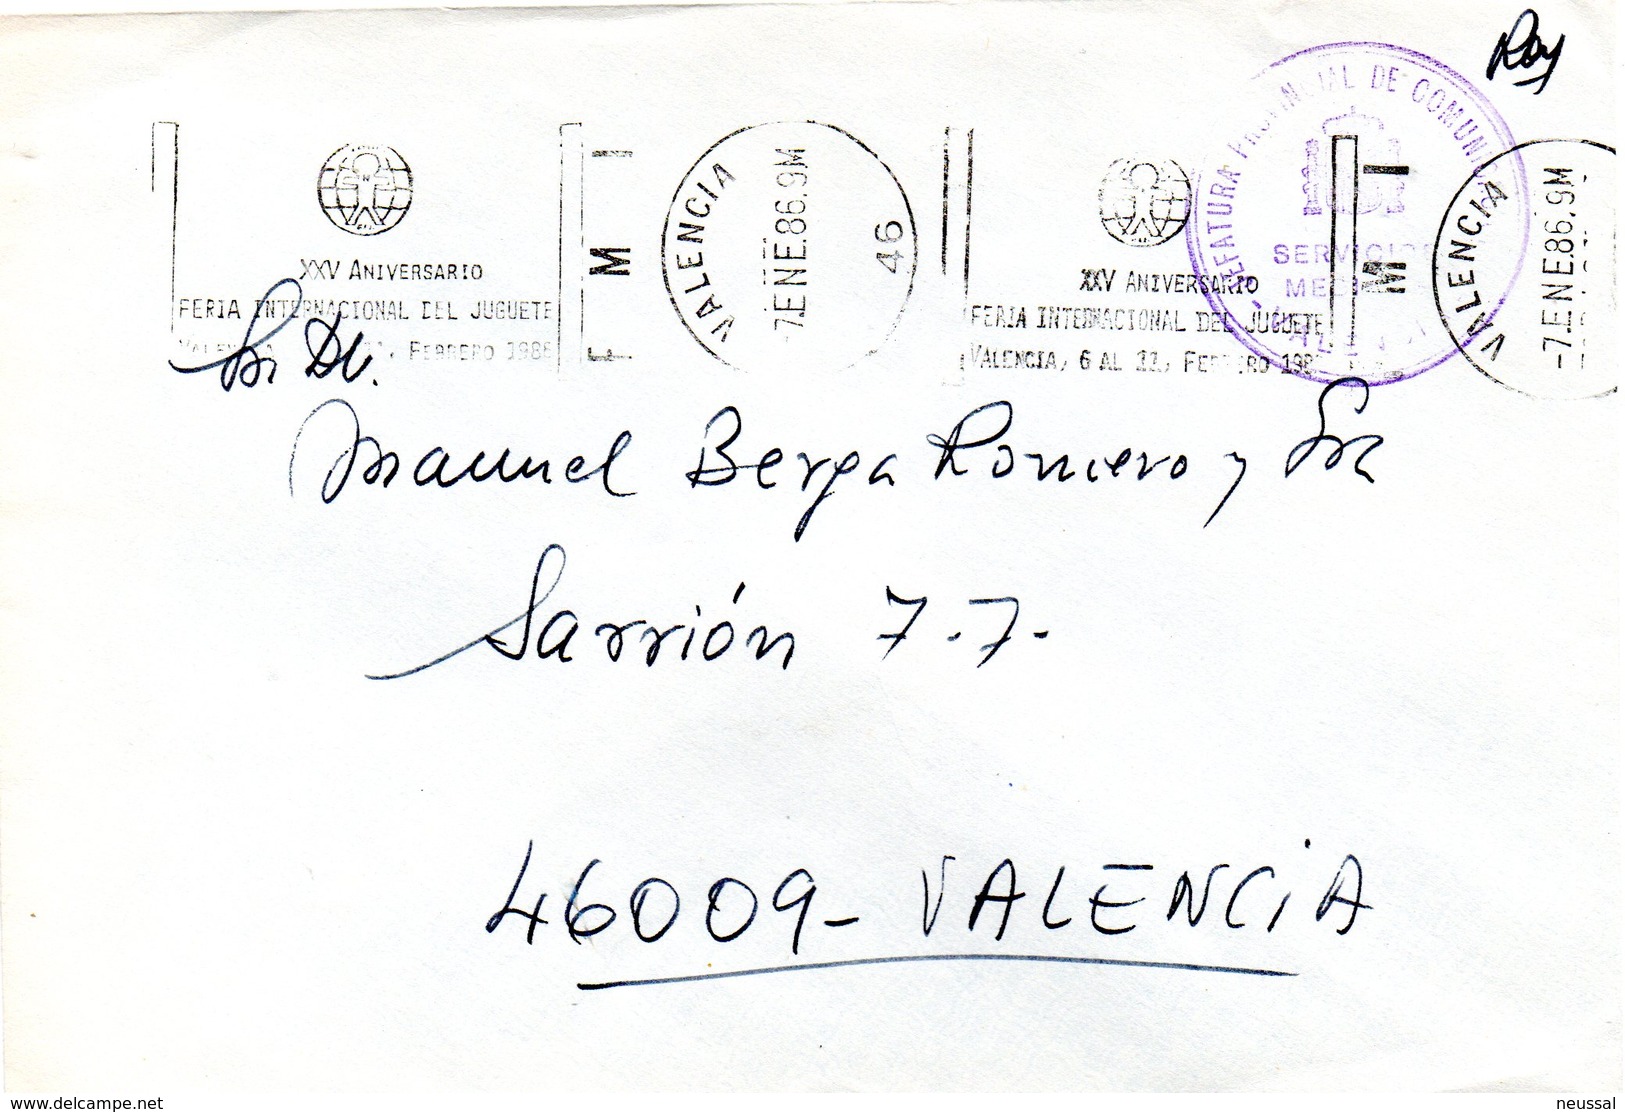 Roy
JEFATURA PROVINCIAL DE COMUNIC
SERVICIOS
XXV ANIVERSARIO
FERIA INTERNACIONAL DEL JUGUETE
VALENCIA, 11, FEBRERO 1986
F M I
VALENCIA
-7.ENE.86.9M
46
XXV ANIVERSARIO
FERIA INTERNACIONAL DEL JUGUETE
VALENCIA, 6 AL 11, FEBRERO 198
M I
VALENCIA
-7.ENE.86.9M
Sr. Dr.
Manuel Berga Romero y Sra
Sarrión 7-7-
46009- VALENCIA
www.delcampe.net
neussal